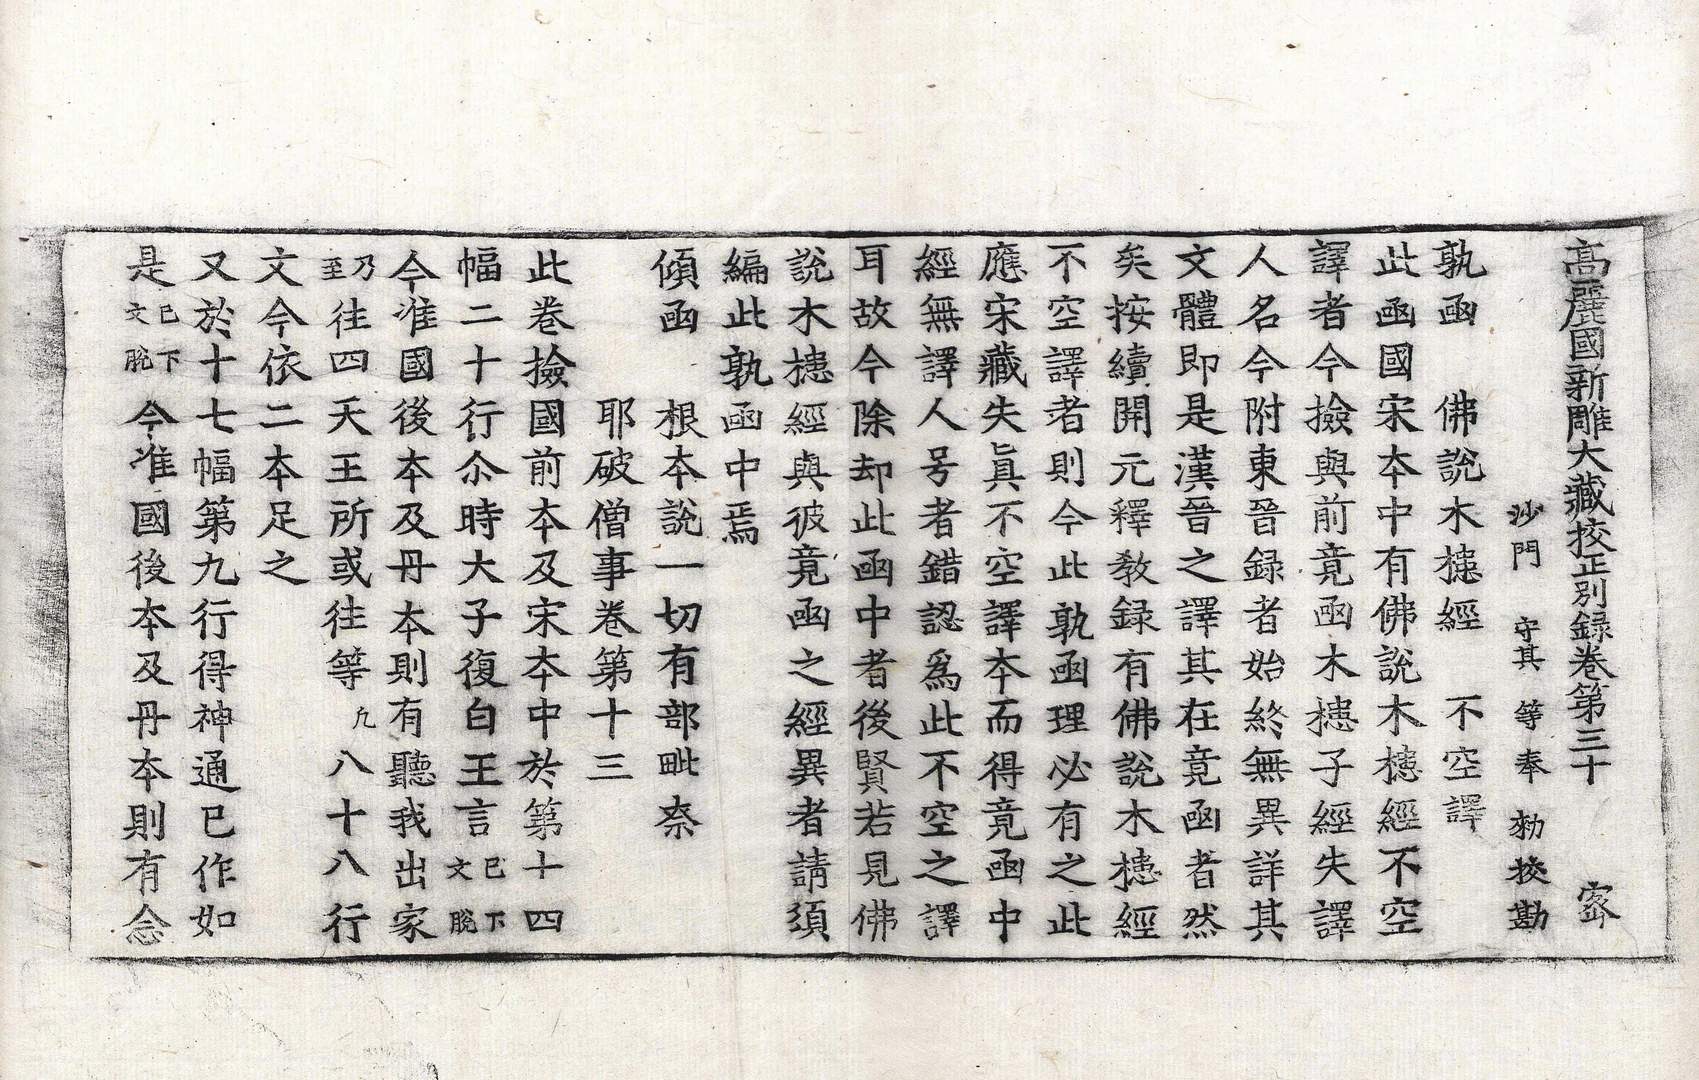 高麗國新雕大藏挍正別録卷第三十　密
沙門　守其　等奉　勑挍勘
孰函　佛說木槵經　不空譯
此函國宋本中有佛說木槵經不空
譯者今撿與前竟函木槵子經失譯
人名今附東晉録者始終無異詳其
文體即是漢晉之譯其在竟函者然
矣按續開元釋敎録有佛說木槵經
不空譯者則今此孰函理必有之此
應宋藏失眞不空譯本而得竟函中
經無譯人号者錯認爲此不空之譯
耳故今除却此函中者後賢若見佛
說木槵經與彼竟函之經異者請須
編此孰函中焉
傾函　根本說一切有部毗奈
耶破僧事卷第十三
此卷撿國前本及宋本中於第十四
幅二十行尒時大子復白王言已下文脫
今准國後本及丹本則有聽我出家
乃至往四天王所或往等凡八十八行
文今依二本足之
又於十七幅第九行得神通已作如
是已下文脫今准國後本及丹本則有念